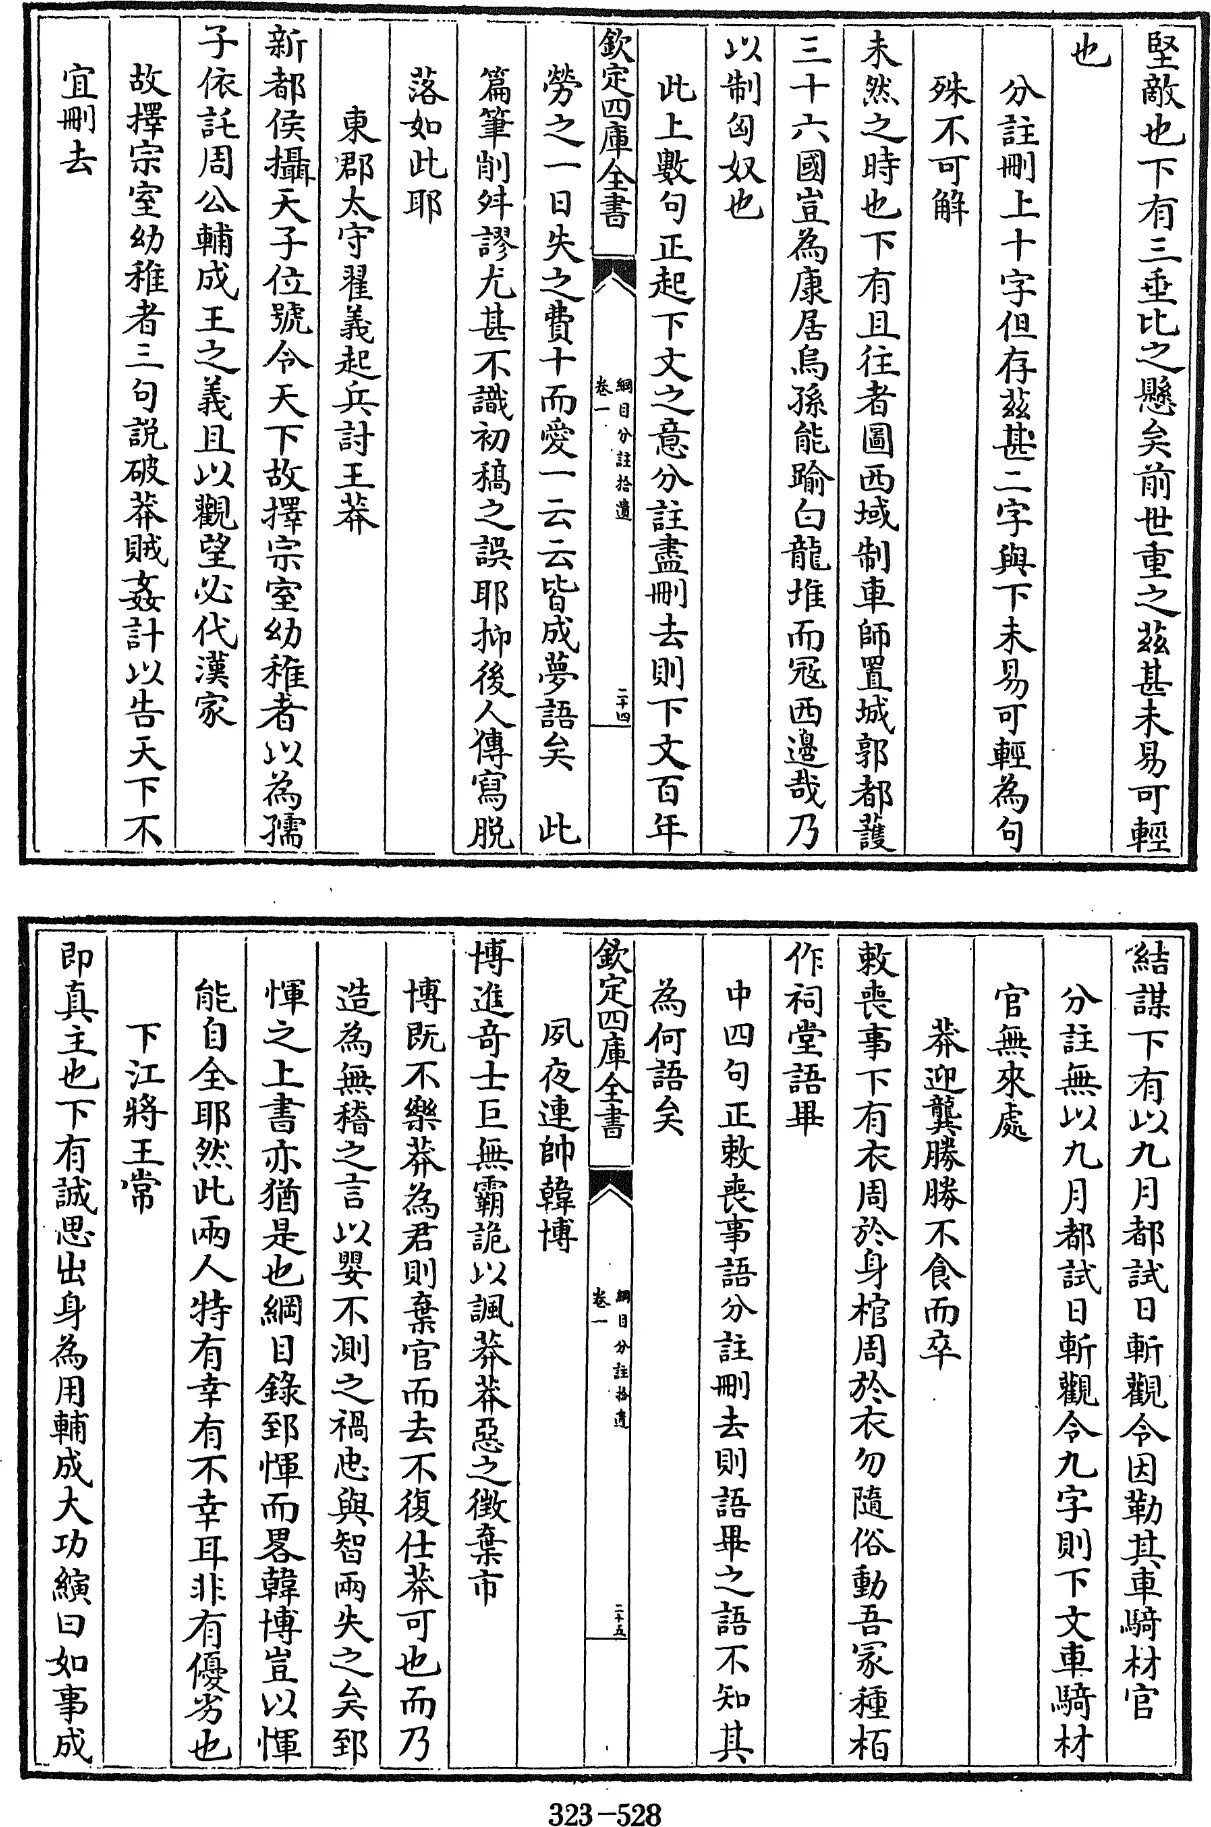 堅敵也下有三垂比之懸矣前世重之茲甚未易可輕
也
分註刪上十字但存茲甚二字與下未易可輕為句
殊不可解
未然之時也下有且往者圖西域制車師置城郭都護
三十六國豈為康居烏孫能踰白龍堆而冦西邊哉乃
以制匈奴也
此上數句正起下文之意分註盡刪去則下文百年
欽定四庫全書
綱目分註拾遺
卷一
二十四
勞之一日失之費十而愛一云云皆成夢語矣 此
篇筆削舛謬尤甚不識初稿之誤耶抑後人傳寫脱
落如此耶
東郡太守翟義起兵討王莽
新都侯攝天子位號令天下故擇宗室幼稚者以為孺
子依託周公輔成王之義且以觀望必代漢家
故擇宗室幼稚者三句説破莽賊姦計以告天下不
宜刪去
結謀下有以九月都試日斬觀令因勒其車騎材官
分註無以九月都試日斬觀令九字則下文車騎材
官無來處
莽迎龔勝勝不食而卒
敕喪事下有衣周於身棺周於衣勿隨俗動吾冢種栢
作祠堂語畢
中四句正敕喪事語分註刪去則語畢之語不知其
為何語矣
欽定四庫全書
綱目分註拾遺
卷一
二十五
夙夜連帥韓博
博進奇士巨無霸詭以諷莽莽惡之徴棄市
博既不樂莽為君則棄官而去不復仕莽可也而乃
造為無稽之言以嬰不測之禍忠與智兩失之矣郅
惲之上書亦猶是也綱目錄郅惲而畧韓博豈以惲
能自全耶然此兩人特有幸有不幸耳非有優劣也
下江將王常
即真主也下有誠思出身為用輔成大功縯曰如事成
323-528